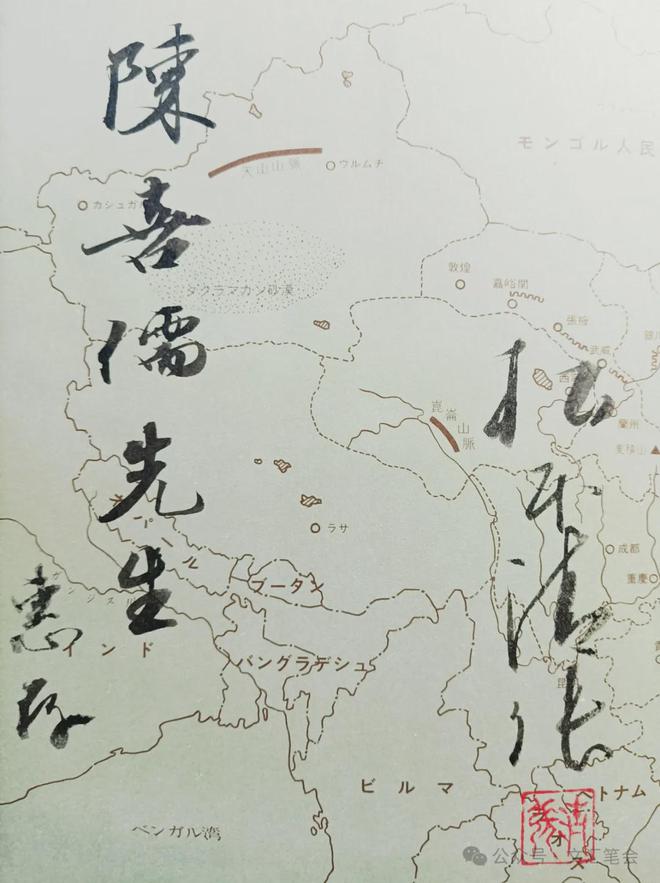 陳喜儒先生
惠存
松本清張
モンゴル人民
天山山脈
ウルムチ
カシュガ
タクラマカン砂漠
敦煌
嘉峪関
張掖
武威
西
蘭州
麦積山
崑崙山脈
ラサ
成都
重慶
ネパール
ブータン
ガンジス
インド
バングラデシュ
昆
ビルマ
トナム
ラオス
ベンガル湾
公众号 · 文汇笔会